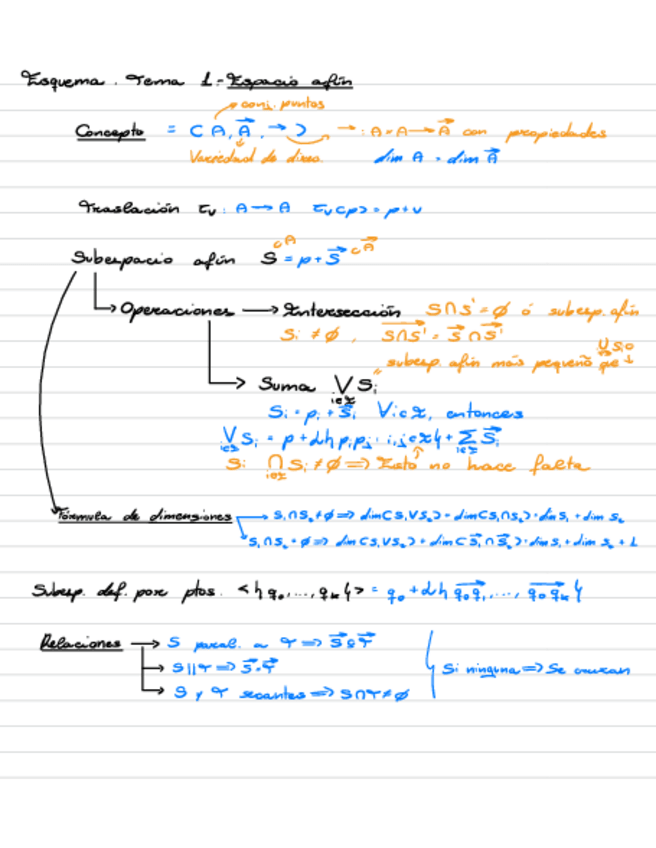 Esquema. Tema 1.- Espacio afín
conj. puntos
Concepto = (A, A⃗, →) → : A×A → A⃗ con propiedades
Variedad de direc. dim A = dim A⃗
Traslación τᵥ : A → A τᵥ(p) = p+v
Subespacio afín S = p + S⃗ ⊂A ⊂A⃗
→ Operaciones → Intersección S∩S' = ∅ ó subesp. afín
Si ≠ ∅, S∩S'⃗ = S⃗∩S⃗'
"subesp. afín más pequeño que ↓
→ Suma ⋁ Sᵢ i∈I
Sᵢ = pᵢ + S⃗ᵢ ∀i∈I, entonces
⋁ Sᵢ = p + L{pᵢpⱼ : i,j∈I} + Σ S⃗ᵢ
Si ∩ Sᵢ ≠ ∅ ⇒ Esto no hace falta
Fórmula de dimensiones → S₁∩S₂≠∅ ⇒ dim(S₁∨S₂) + dim(S₁∩S₂) = dim S₁ + dim S₂
S₁∩S₂ = ∅ ⇒ dim(S₁∨S₂) + dim(S⃗₁∩S⃗₂) = dim S₁ + dim S₂ + 1
Subesp. def. por ptos. <{q₀,...,qₖ}> = q₀ + L{q₀q₁⃗,..., q₀qₖ⃗}
Relaciones → S paral. a T ⇒ S⃗⊆T⃗
→ S∥T ⇒ S⃗=T⃗
→ S y T secantes ⇒ S∩T≠∅
Si ninguna ⇒ Se cruzan